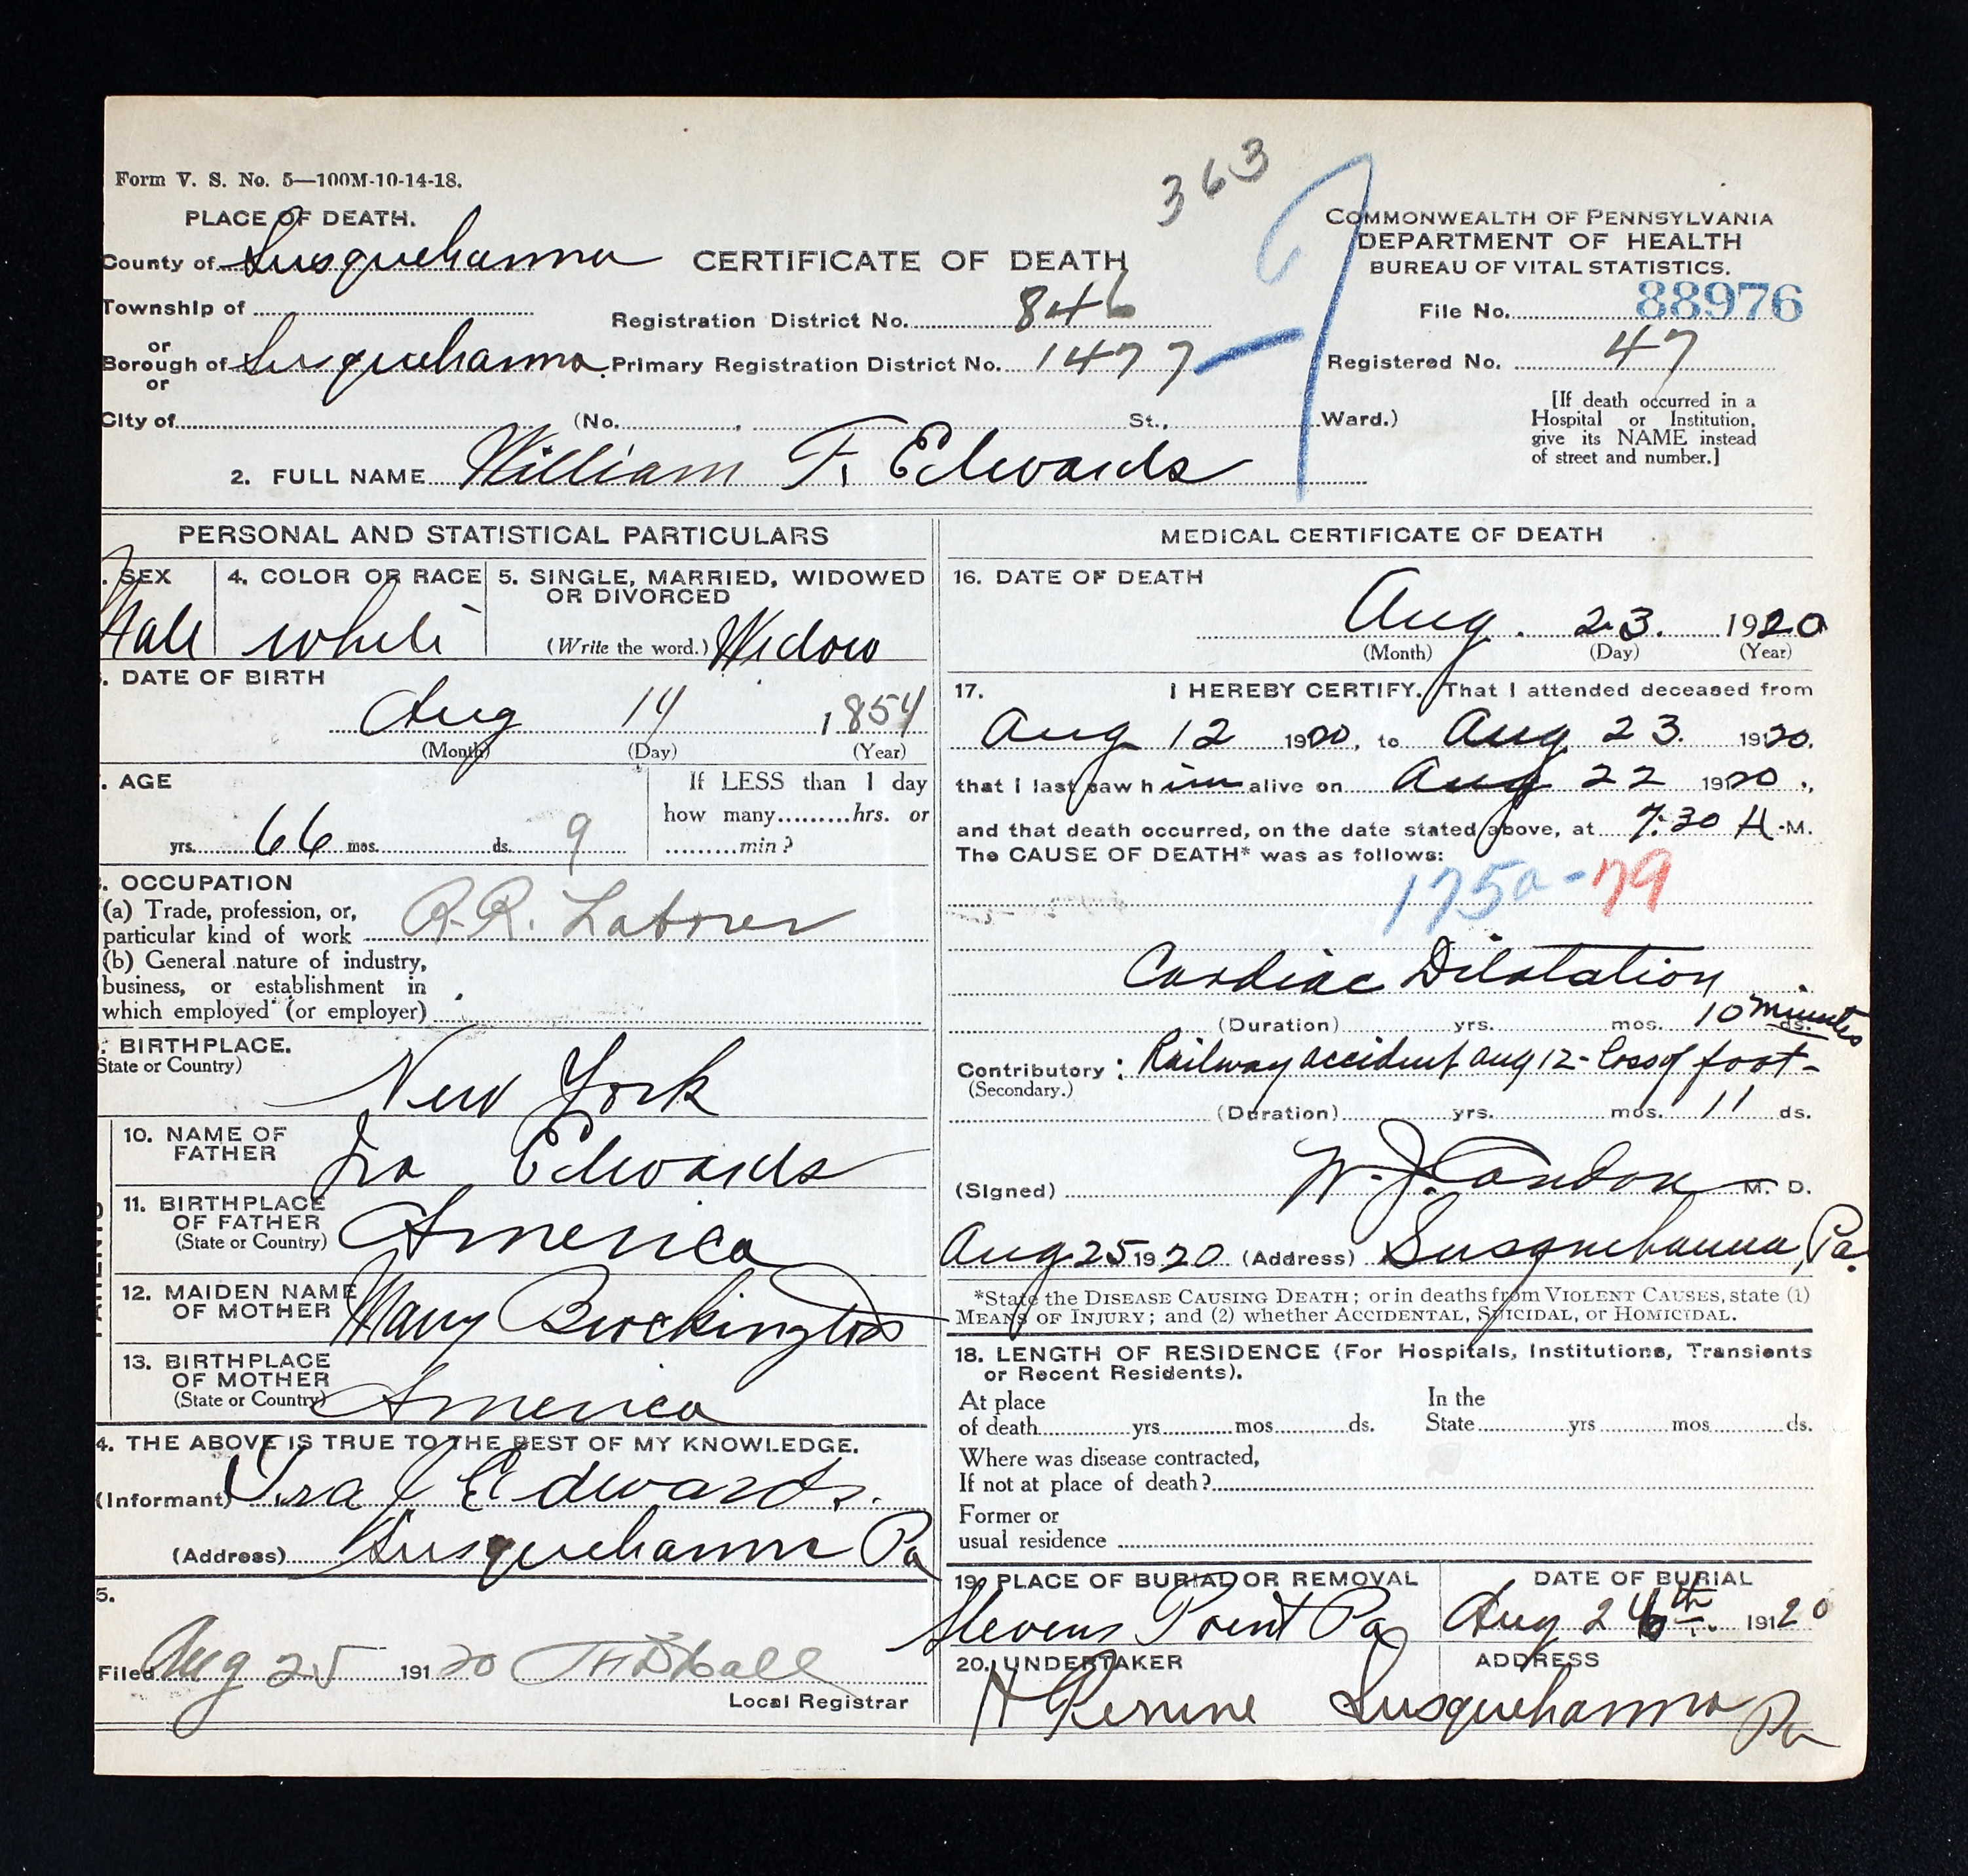 363
Form V. S. No. 5—100M-10-14-18.
PLACE OF DEATH.
County of Susquehanna
CERTIFICATE OF DEATH
COMMONWEALTH OF PENNSYLVANIA
DEPARTMENT OF HEALTH
BUREAU OF VITAL STATISTICS.
Township of
or
Registration District No. 846
File No. 88976
Borough of Susquehanna. Primary Registration District No. 1477
Registered No. 47
or
City of (No. , St., Ward.)
[If death occurred in a
Hospital or Institution,
give its NAME instead
of street and number.]
2. FULL NAME William F. Edwards
PERSONAL AND STATISTICAL PARTICULARS
. SEX
Male
4. COLOR OR RACE
White
5. SINGLE, MARRIED, WIDOWED
OR DIVORCED
(Write the word.) Widow
. DATE OF BIRTH
Aug 14 1854
(Month) (Day) (Year)
. AGE
yrs. 66 mos. ds. 9
If LESS than 1 day
how many.........hrs. or
.........min?
. OCCUPATION
(a) Trade, profession, or,
particular kind of work R.R. Laborer
(b) General nature of industry,
business, or establishment in
which employed (or employer)
. BIRTHPLACE.
State or Country)
New York
PARENTS
10. NAME OF
FATHER
Ira Edwards
11. BIRTHPLACE
OF FATHER
(State or Country)
America
12. MAIDEN NAME
OF MOTHER
Mary
13. BIRTHPLACE
OF MOTHER
(State or Country)
America
4. THE ABOVE IS TRUE TO THE BEST OF MY KNOWLEDGE.
(Informant) Ira J Edwards.
(Address) Susquehanna Pa
5.
Filed Aug 25 191 20
Local Registrar
MEDICAL CERTIFICATE OF DEATH
16. DATE OF DEATH
Aug. 23. 1920
(Month) (Day) (Year)
17. I HEREBY CERTIFY. That I attended deceased from
Aug 12 1920, to Aug. 23. 1920.
that I last saw him alive on Aug 22 1920.,
and that death occurred, on the date stated above, at 7.30 A.M.
The CAUSE OF DEATH* was as follows:
175a-79
Cardiac Dilatation
(Duration) yrs. mos. 10 minutes ds.
Contributory : Railway accident Aug 12 - Loss of foot -
(Secondary.)
(Duration) yrs. mos. 11 ds.
(Signed) W. J. Condon M. D.
Aug 25 1920 (Address) Susquehanna, Pa.
*State the DISEASE CAUSING DEATH; or in deaths from VIOLENT CAUSES, state (1)
MEANS OF INJURY; and (2) whether ACCIDENTAL, SUICIDAL, or HOMICIDAL.
18. LENGTH OF RESIDENCE (For Hospitals, Institutions, Transients
or Recent Residents).
At place
of death yrs mos ds.
In the
State yrs mos ds.
Where was disease contracted,
If not at place of death?
Former or
usual residence
19. PLACE OF BURIAL OR REMOVAL
Stevens Point Pa
DATE OF BURIAL
Aug 26th. 191 20
20. UNDERTAKER
H Perrine
ADDRESS
Susquehanna Pa